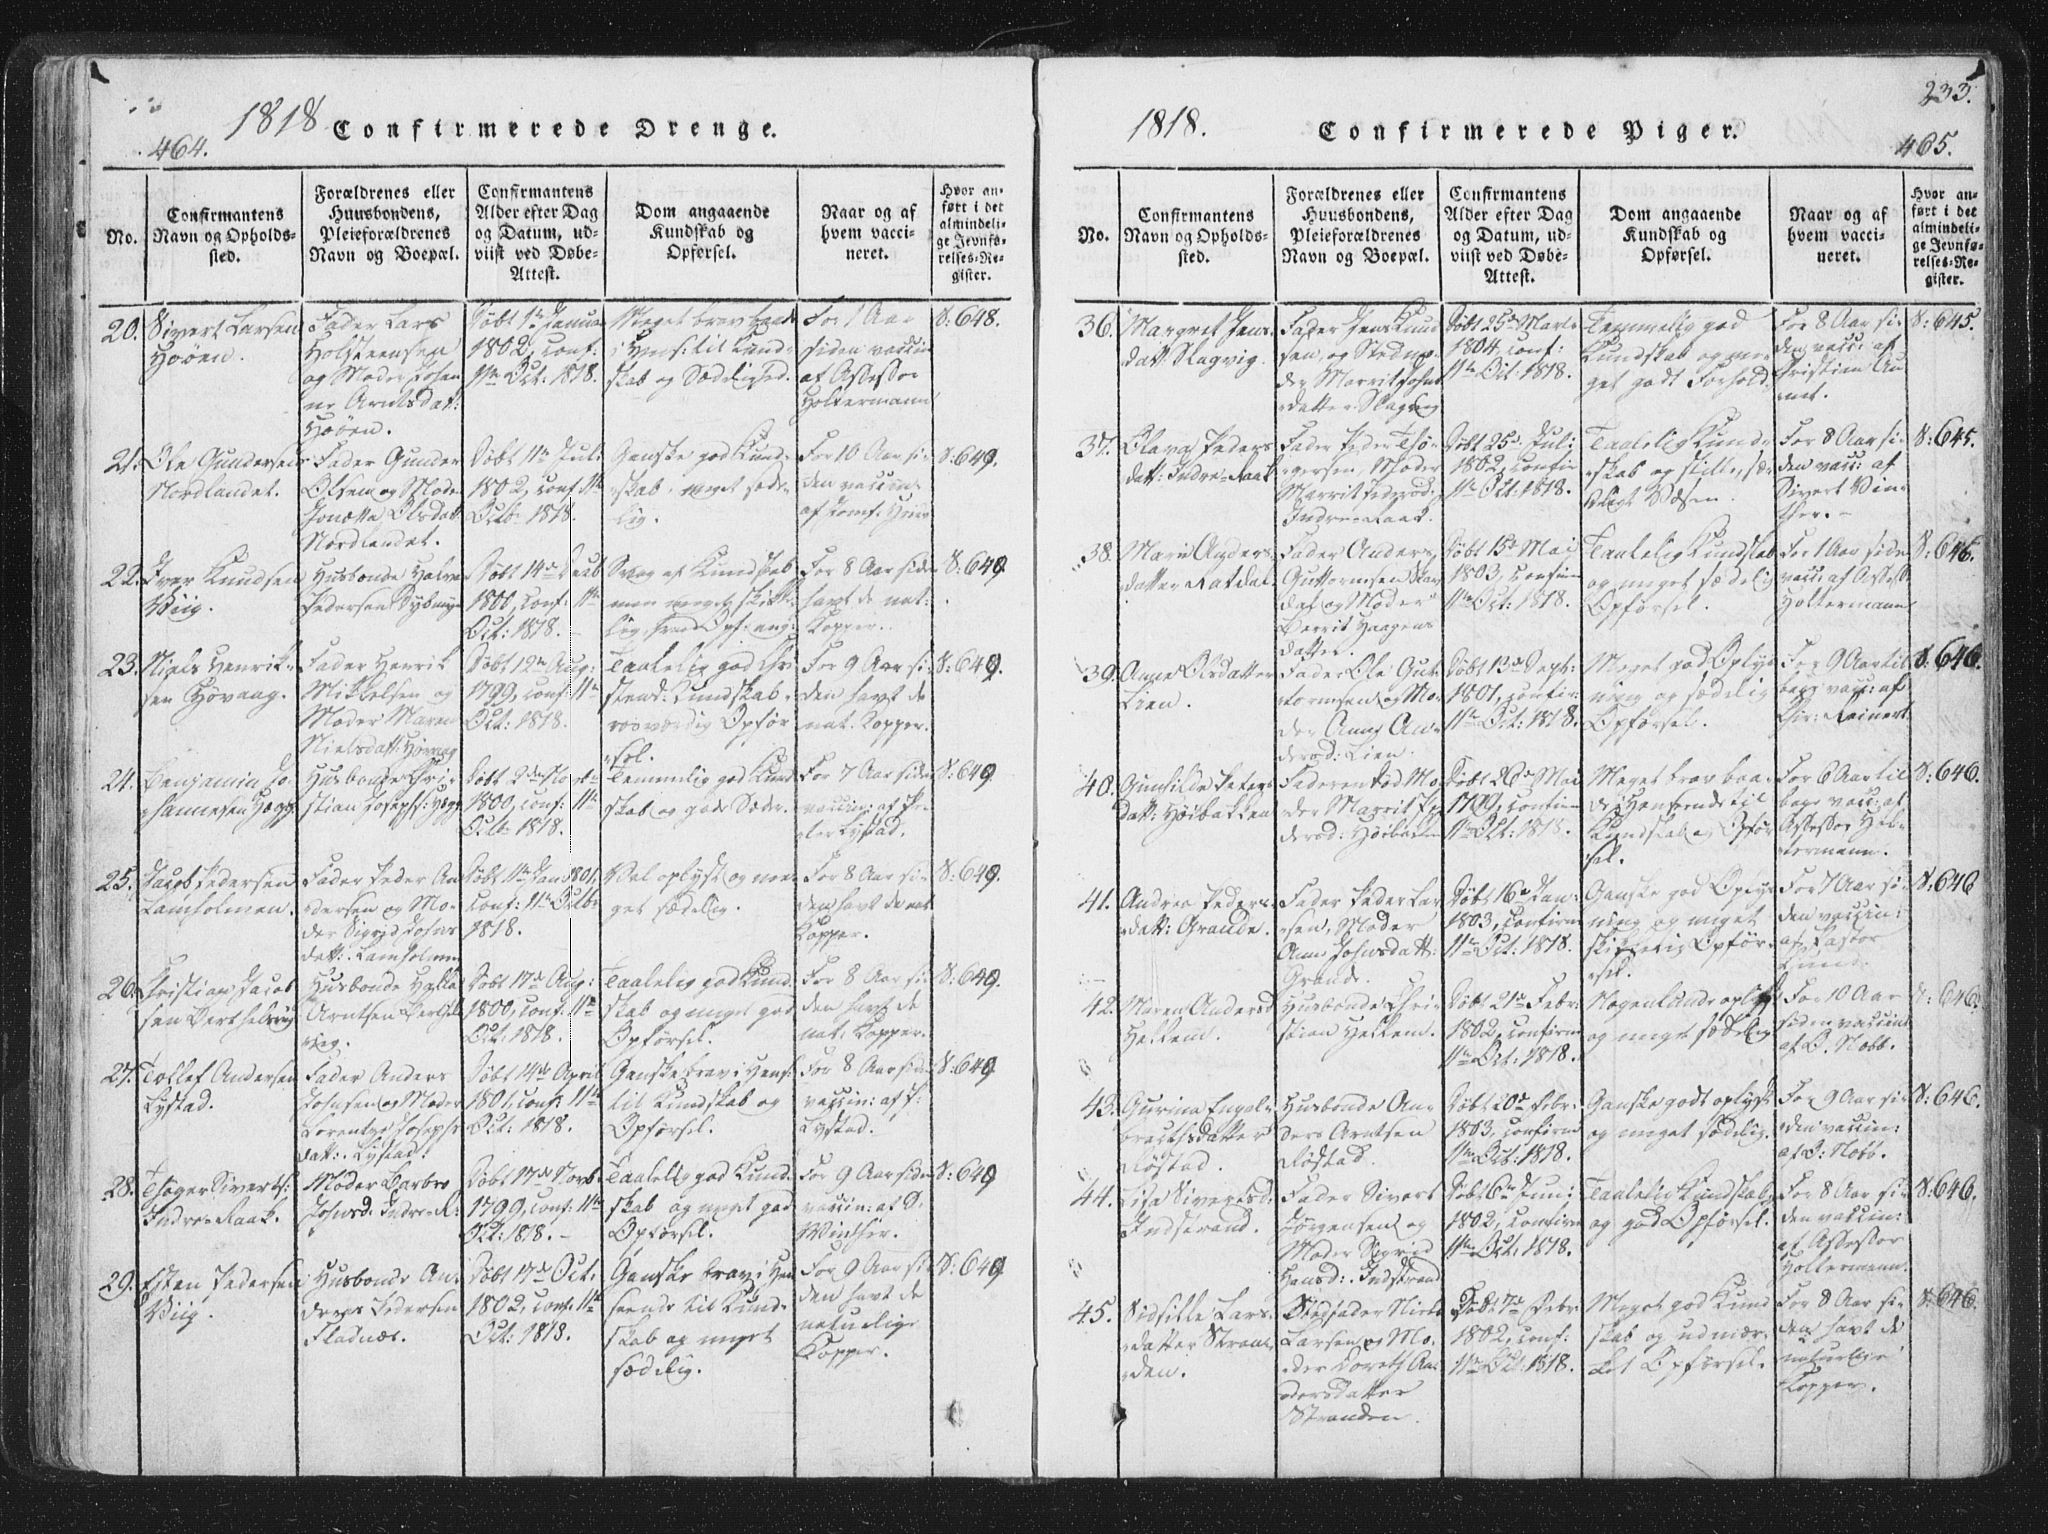 1818
Confirmerede Drenge.
464.
No.
Confirmantens
Navn og Opholds-
sted.
Forældrenes eller
Huusbondens,
Pleieforældrenes
Navn og Boepæl.
Confirmantens
Alder efter Dag
og Datum, ud-
viist ved Døbe-
Attest.
Dom angaaende
Kundskab og
Opførsel.
Naar og af
hvem vacci-
neret.
Hvor an-
ført i det
almindeli-
ge Jevnfø-
relses-Re-
gister.
20.
Sivert Larsen
Høøen.
Fader Lars
Holsteensen
og Moder
Arntsdatt:
Høøen.
Døbt
1802, conf:
11te Oct: 1818.
Meget brav
til Kund-
skab og Sædelighed.
For 1 Aar
siden vaccin
af Assessor
Holtermann
S: 648.
21.
Ole Gundersen
Nordlandet.
Fader Gunder
Olsen og Mode
Jonetta Olsdatt:
Nordlandet.
Døbt 11te Juli
1802, conf. 11te
Octb: 1818.
Ganske god Kund-
skab, meget sæde-
lig.
For 10 Aar si-
den vaccin:
S: 649.
22.
Iver Knudsen
Viig.
Husbonde
Pedersen
Døbt 14de
1800, conf: 11te
Oct: 1818.
Svag af Kundskab
men meget
For 8 Aar siden
havt de nat:
Kopper.
S: 649
23.
Niels Henrik-
sen Hovaag.
Fader Henrik
Mikkelsen og
Moder Maren
Nielsdatt: Hovaag
Døbt 12te Aug:
1799, conf: 11te
Oct: 1818.
Taalelig god Chri
stend: Kundskab
rosværdig Opfør
sel.
For 9 Aar si-
den havt de
nat: Kopper.
S: 649.
24.
Benjamin Jo-
hannesen
Husbonde Chri-
stian Josephs:
Døbt 2den
1800, conf: 11te
Octb: 1818.
Temmelig god Kund
skab og gode Sæder.
For 7 Aar siden
vaccin: af Pe-
ter Lystad.
S: 649
25.
Jacob Pedersen
Lamholmen.
Fader Peder An
dersen og Mo-
der Sigrid Johns
datt: Lamholmen
Døbt 1te Jan 1801,
conf: 11te Octbr
1818.
Vel oplyst og me-
get sædelig.
For 8 Aar si-
den havt de nat
Kopper.
S: 649.
26.
Christian Jacob
sen
Husbonde
Arntsen
Døbt 17de Aug:
1800, conf: 11te
Oct: 1818.
Taalelig god Kund
skab og meget god
Opførsel.
For 8 Aar si-
den havt de
nat: Kopper.
S: 649.
27.
Tollef Andersen
Lystad.
Fader Anders
Johnsen og Moder
Lorentze Josephs
datt: Lystad.
Døbt 14de April
1801, conf: 11te
Oct: 1818.
Ganske brav i Hens:
til Kundskab og
Opførsel.
For 8 Aar siden
vaccin: af P:
Lystad.
S: 649
28.
Sivertsf:
Indre-Raak.
Moder Barbro
Johnsd: Indre-R:
Døbt 17de Novb
1799, conf: 11te
Oct: 1818.
Taalelig god Kund-
skab og meget god
Opførsel.
For 9 Aar siden
vaccin: af S.
Winther.
S: 649
29.
Esten Pedersen
Viig.
Husbonde An-
ders Pedersen
Fladnæs.
Døbt 17de Oct:
1802, conf: 11te
Oct: 1818.
Ganske brav i Hen
seende til Kund-
skab og meget
sædelig.
For 9 Aar si-
den havt de
naturlige
Kopper.
S: 649
233.
1818.
Confirmerede Piger.
465.
No.
Confirmantens
Navn og Opholds-
sted.
Forældrenes eller
Huusbondens,
Pleieforældrenes
Navn og Boepæl.
Confirmantens
Alder efter Dag
og Datum, ud-
viist ved Døbe-
Attest.
Dom angaaende
Kundskab og
Opførsel.
Naar og af
hvem vacci-
neret.
Hvor an-
ført i det
almindeli-
ge Jevnfø-
relses-Re-
gister.
36.
Margret Jens
datt: Slagvig.
Fader Jens Knud
sen, og Stedmo-
der Marrit Johns
datter Slagvig
Døbt 25de Marts
1804, conf:
11te Oct: 1818.
Temmelig god
Kundskab og me-
get godt Forhold.
For 8 Aar si-
den vacc: af
Christian
S: 645.
37.
Olava Peders
datt: Indre-Raak
Fader Peder
Moder
Marrit
Indre-Raak.
Døbt 25de Juli
1802, confir
11te Oct: 1818.
Taalelig Kund-
skab og stille, sæ-
deligt Væsen.
For 8 Aar si-
den vacc: af
Sivert Vin-
ther.
S: 645.
38.
Marit Anders
datter
Fader Anders
Guttormsen
og Moder
Berrit Haagens
datter.
Døbt 15de Mai
1803, confirm
11te Oct: 1818.
Taalelig Kundskab
og meget sædelig
Opførsel.
For 1 Aar siden
vacc: af Assess:
Holtermann
S: 646.
39.
Anne Olsdatter
Lien.
Fader Ole Gut-
tormsen og Mo-
der Anne An-
dersd: Lien.
Døbt 13de Sept:
1801, confir:
11te Oct: 1818.
Meget god Oplys
ning og sædelig
Opførsel.
For 9 Aar til
bage vacc: af
Chir: Reinert.
S: 646.
40.
Gunhilde Peters
datt: Høibakken
Faderen død Mo-
der Marrit
Høibakken
Døbt 26de Mai
1799, confirm
11te Oct: 1818.
Meget brav baa-
de Henseende til
Kundskab og Opfør
sel.
For 6 Aar til
bage vacc: af
Assessor Hol-
termann.
S: 646.
41.
Andrea Peders-
datt: Grande.
Fader Peder Lar
sen, Moder
Anne Johnsdatt:
Grande.
Døbt 16de Jan:
1803, confirm
11te Oct: 1818.
Ganske god Oplys
ning og meget
skikkelig Opfør-
sel.
For 7 Aar si-
den vaccin:
af Pastor
Lund.
S: 646
42.
Maren Andersd
Hellem.
Husbonde Chri-
stian Hellem.
Døbt 21de Febr:
1802, confirm
11te Oct: 1818.
Nogenlunde oplyst
og meget sædelig
For 10 Aar
siden vaccin:
af O. Nobb.
S: 646.
43.
Gurina Engel-
brechtsdatter
Røstad.
Husbonde An-
ders Arntsen
Røstad.
Døbt 20de Febr.
1803, confirm
11te Oct: 1818.
Ganske godt oplyst
og meget sædelig.
For 9 Aar si-
den vaccin:
af O: Nobb.
S: 646.
44.
Lisa Siversd.
Indstrand.
Fader Sivert
Jørgensen og
Moder Sigrid
Hansd: Indstrand
Døbt 6te Juni
1802, confirm
11te Oct: 1818.
Taalelig Kundskab
og god Opførsel.
For 8 Aar si-
den vaccin:
af Assessor
Holtermann.
S: 646.
45.
Sidselle Lars-
datter Stran-
den.
Stedfader Niels
Larsen og Mo-
der Dorothe An-
dersdatter
Stranden.
Døbt 7de Febr
1802, conf:
11te Oct: 1818.
Meget god Kund
skab og udmær-
ket Opførsel.
For 8 Aar si-
den havt de
naturlige
Kopper.
S: 646.